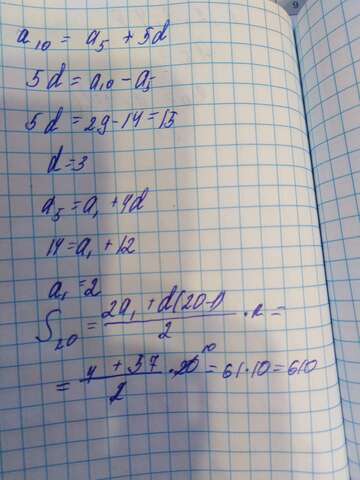 a₁₀ = a₅ + 5d
5d = a₁₀ - a₅
5d = 29 - 14 = 15
d = 3
a₅ = a₁ + 4d
14 = a₁ + 12
a₁ = 2
S₂₀ = (2a₁ + d(20-1))/2 · n =
= (4 + 57)/2 · 20 10 = 61 · 10 = 610